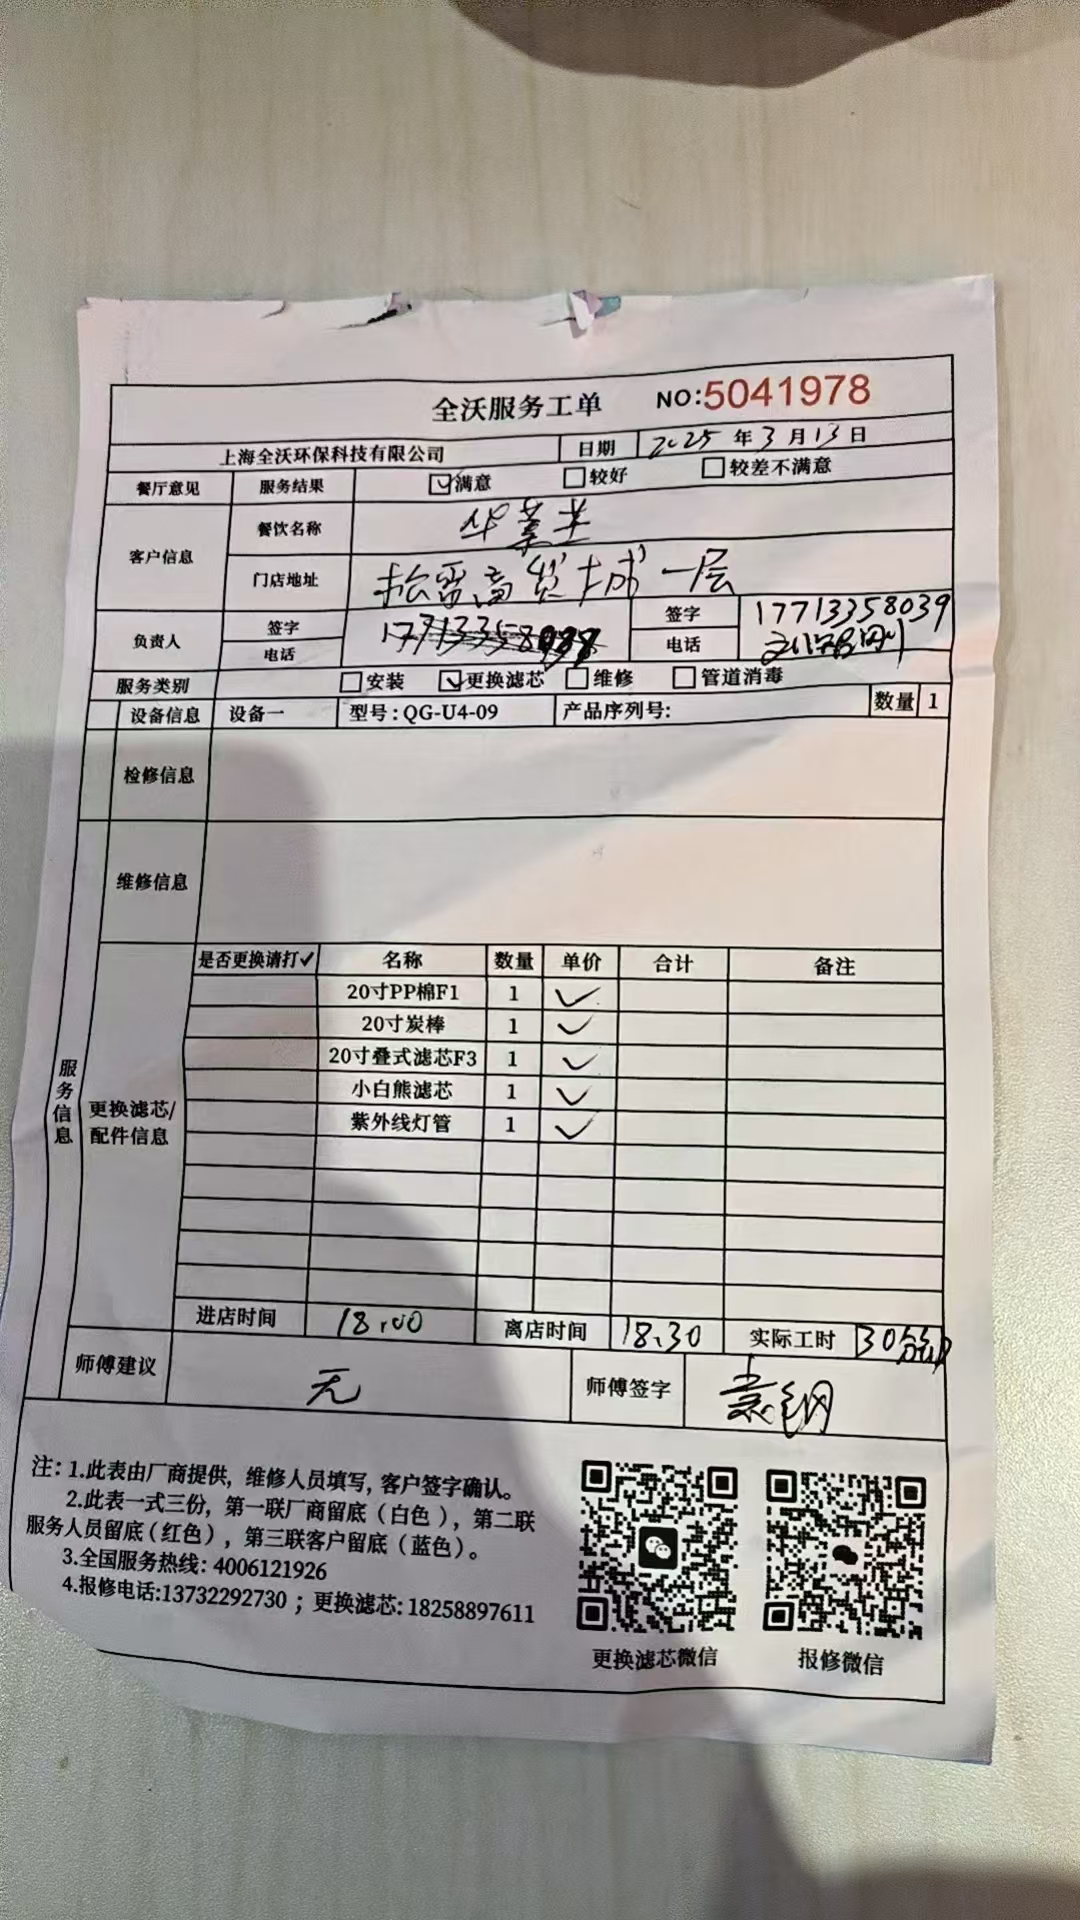 全沃服务工单 NO:5041978
上海全沃环保科技有限公司 日期 2025年3月13日
餐厅意见 服务结果 ☑满意 □较好 □较差不满意
客户信息 餐饮名称 华莱士
门店地址 一层
负责人 签字 电话 签字 17713358039 电话
服务类别 □安装 ☑更换滤芯 □维修 □管道消毒
设备信息 设备一 型号:QG-U4-09 产品序列号: 数量 1
检修信息
维修信息
服务信息
更换滤芯/配件信息
是否更换请打✓ 名称 数量 单价 合计 备注
20寸PP棉F1 1 ✓
20寸炭棒 1 ✓
20寸叠式滤芯F3 1 ✓
小白熊滤芯 1 ✓
紫外线灯管 1 ✓
进店时间 18:00 离店时间 18:30 实际工时 30分钟
师傅建议 无 师傅签字
注:1.此表由厂商提供,维修人员填写,客户签字确认。
2.此表一式三份,第一联厂商留底(白色),第二联
服务人员留底(红色),第三联客户留底(蓝色)。
3.全国服务热线:4006121926
4.报修电话:13732292730;更换滤芯:18258897611
更换滤芯微信 报修微信